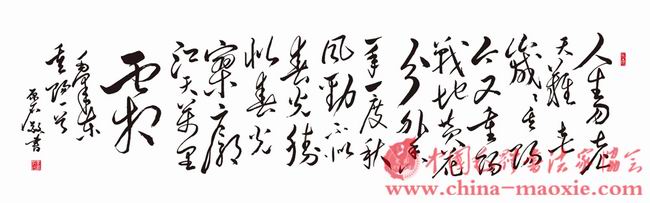 人生易老
天难老
岁岁重阳
今又重阳
战地黄花
分外香
一年一度秋
风劲不似
春光胜
似春光
寥廓
江天万里
霜
毛泽东
重阳一首
君毅书
中国毛体书法家协会
www.china-maoxie.com